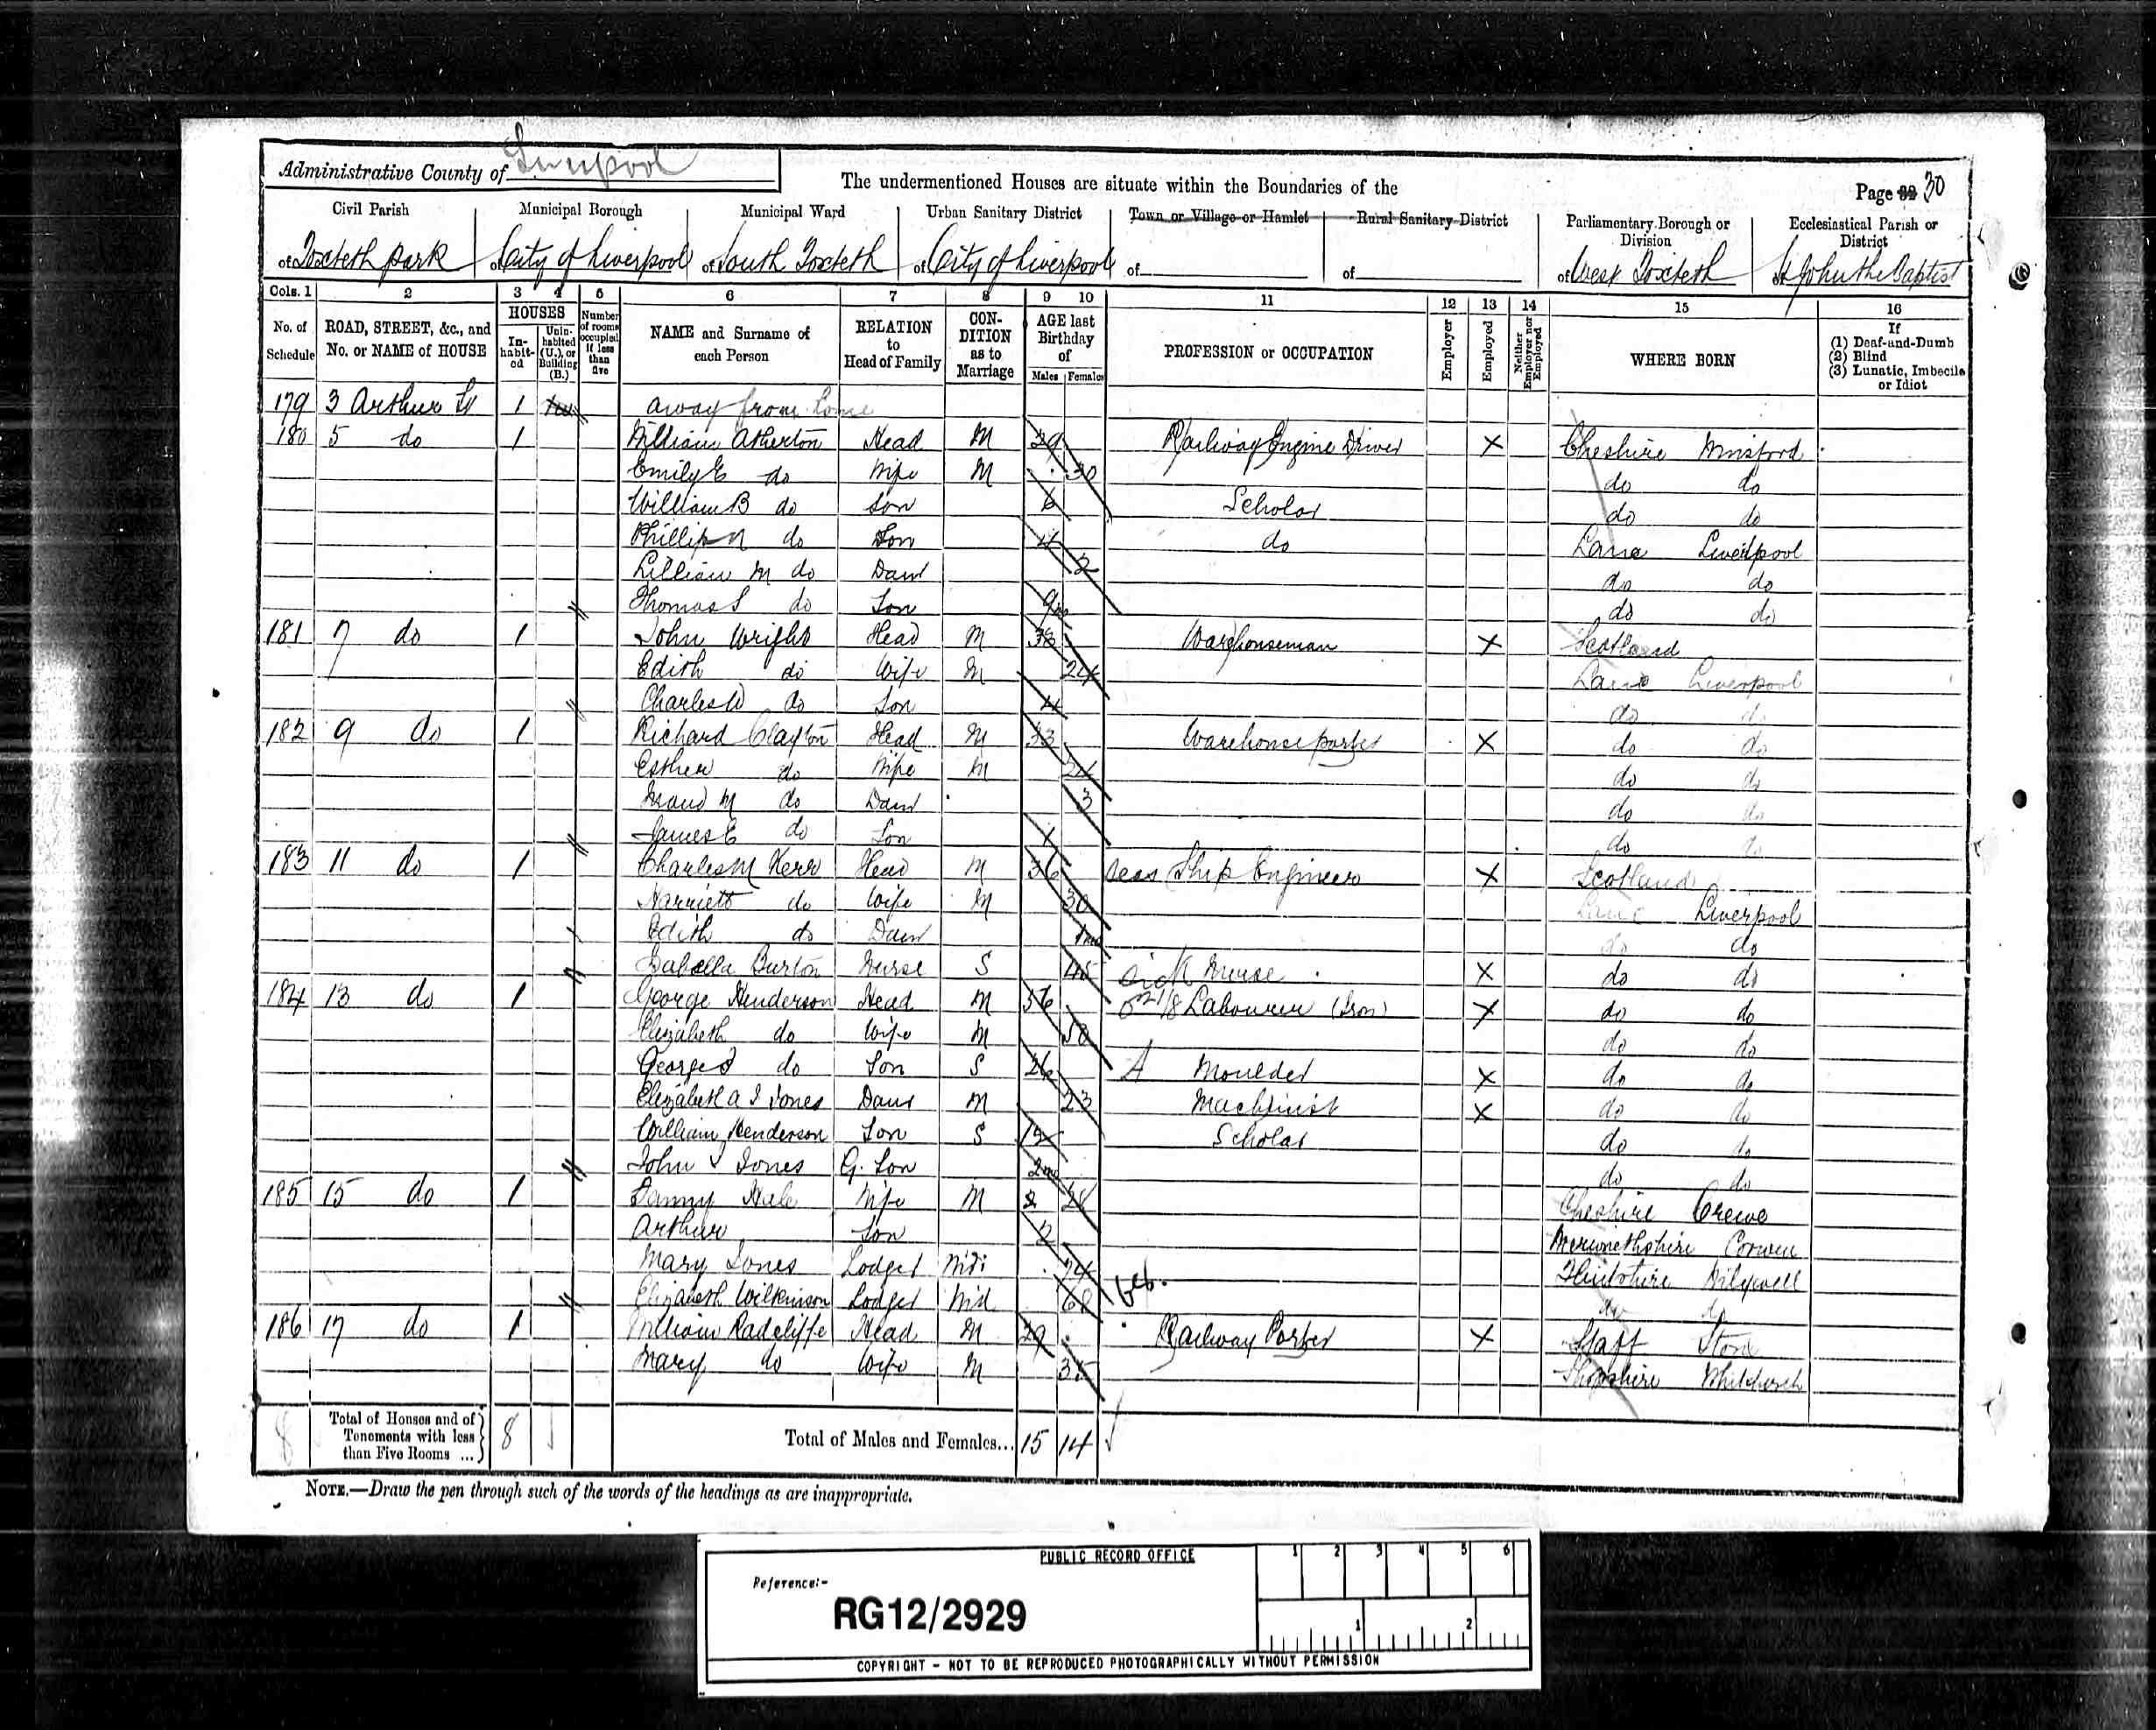 Administrative County of Liverpool
The undermentioned Houses are situate within the Boundaries of the
Page 32 30
Civil Parish Municipal Borough Municipal Ward Urban Sanitary District Town or Village or Hamlet Rural Sanitary District Parliamentary Borough or Division Ecclesiastical Parish or District
of Toxteth park of City of Liverpool of South Toxteth of City of Liverpool of of of West Toxteth St John the Baptist
Cols. 1 2 3 4 5 6 7 8 9 10 11 12 13 14 15 16
No. of Schedule ROAD, STREET, &c., and No. or NAME of HOUSE HOUSES In-habit-ed Unin-habited (U.), or Building (B.) Number of rooms occupied if less than five NAME and Surname of each Person RELATION to Head of Family CON-DITION as to Marriage AGE last Birthday of Males Females PROFESSION or OCCUPATION Employer Employed Neither Employer nor Employed WHERE BORN If (1) Deaf-and-Dumb (2) Blind (3) Lunatic, Imbecile or Idiot
179 3 Arthur St 1 away from home
180 5 do 1 William Atherton Head M 29 Railway Engine Driver X Cheshire Winsford
Emily E do Wife M 30 do do
William B do Son 6 Scholar do do
Phillip N do Son 4 do Lanc Liverpool
Lillian M do Daur 2 do do
Thomas S do Son 9mo do do
181 7 do 1 John Wright Head M 38 Warehouseman X Scotland
Edith do Wife M 24 Lanc Liverpool
Charles W do Son 4 do do
182 9 do 1 Richard Clayton Head M 33 Warehouse porter X do do
Esther do Wife M 24 do do
Maud M do Daur 3 do do
James E do Son 1 do do
183 11 do 1 Charles M Kerr Head M 36 Ship Engineer X Scotland
Harriett do Wife M 30 Lanc Liverpool
Edith do Daur 1mo do do
Isabella Burton Nurse S 45 Sick Nurse X do do
184 13 do 1 George Henderson Head M 56 Labourer (Iron) X do do
Elizabeth do Wife M 50 do do
George do Son S 26 Moulder X do do
Elizabeth A I Jones Daur M 23 Machinist X do do
William Henderson Son S 12 Scholar do do
John Jones G. Son 2mo do do
185 15 do 1 Fanny Hale Wife M 28 Cheshire Crewe
Arthur Son 2 Merionethshire Corwen
Mary Jones Lodger Wid 74 Flintshire
Elizabeth Wilkinson Lodger Wid 68 do do
186 17 do 1 William Radcliffe Head M 29 Railway Porter X Staff Stone
Mary do Wife M 35 Shropshire Whitchurch
8 Total of Houses and of Tenements with less than Five Rooms ... 8 Total of Males and Females... 15 14
NOTE.—Draw the pen through such of the words of the headings as are inappropriate.
PUBLIC RECORD OFFICE
1 2 3 4 5 6
Reference:-
RG12/2929
1 2
COPYRIGHT - NOT TO BE REPRODUCED PHOTOGRAPHICALLY WITHOUT PERMISSION